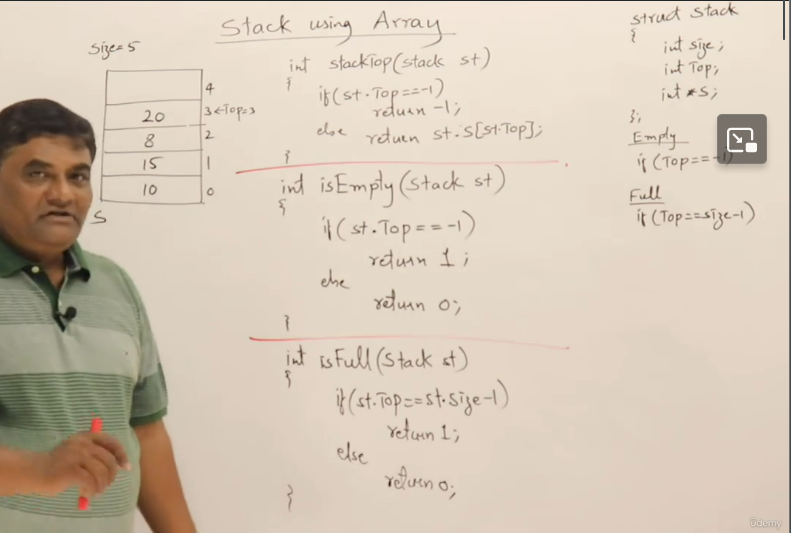 Stack using Array
Size=5
4
20 3←Top=3
8 2
15 1
10 0
S
int stackTop(stack st)
{
if(st.Top==-1)
return -1;
else return st.S[st.Top];
}
int isEmpty(Stack st)
{
if(st.Top==-1)
return 1;
else
return 0;
}
int isFull(Stack st)
{
if(st.Top==st.Size-1)
return 1;
else
return 0;
}
struct Stack
{
int size;
int Top;
int *S;
};
Empty
if(Top==-1)
Full
if(Top==size-1)
ûdemy